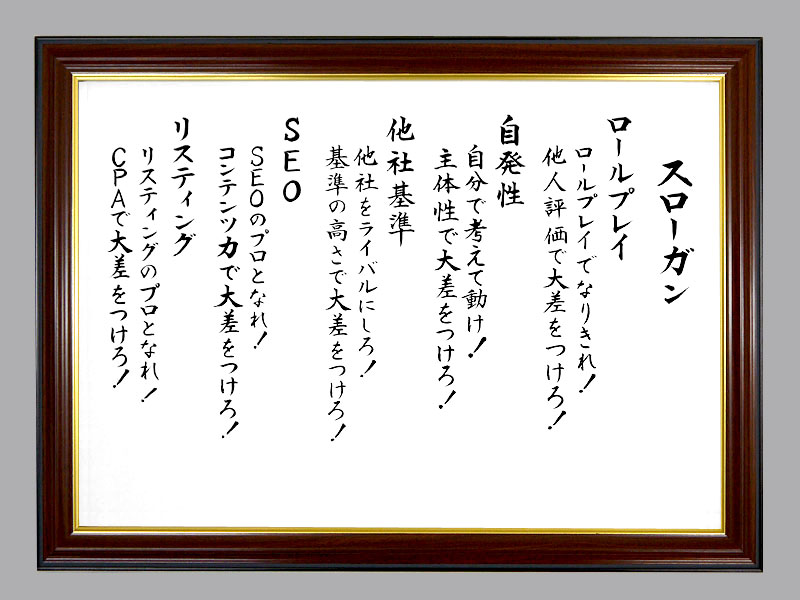 スローガン
ロールプレイ
ロールプレイでなりきれ!
他人評価で大差をつけろ!
自発性
自分で考えて動け!
主体性で大差をつけろ!
他社基準
他社をライバルにしろ!
基準の高さで大差をつけろ!
SEO
SEOのプロとなれ!
コンテンツ力で大差をつけろ!
リスティング
リスティングのプロとなれ!
CPAで大差をつけろ!